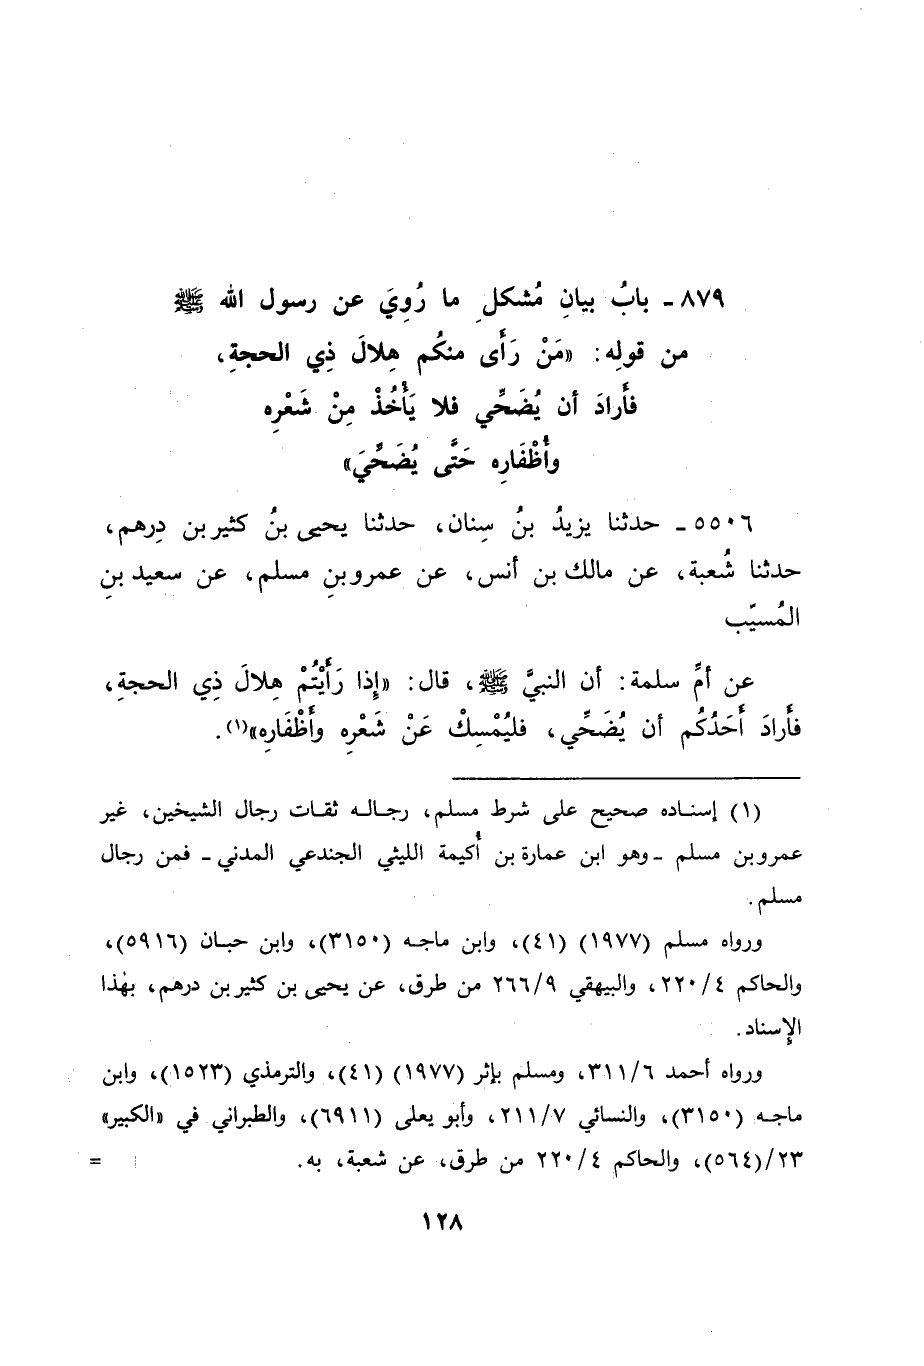 ٨٧٩ ـ بابُ بيانِ مُشكلِ ما رُوِيَ عن رسول الله ﷺ
من قولِه: «مَنْ رَأَى منكُم هِلالَ ذِي الحجةِ،
فأَرادَ أن يُضَحِّي فلا يَأْخُذْ مِنْ شَعْرِه
وأَظْفَارِه حَتَّى يُضَحِّيَ»
٥٥٠٦ ـ حدثنا يزيدُ بنُ سِنان، حدثنا يحيى بنُ كثير بن دِرهم،
حدثنا شُعبة، عن مالك بن أنس، عن عمرو بنِ مسلم، عن سعيد بنِ
المُسيّب
عن أمِّ سلمة: أن النبيَّ ﷺ، قال: «إِذا رَأَيْتُمْ هِلالَ ذِي الحجةِ،
فأَرادَ أَحَدُكُم أن يُضَحِّي، فليُمْسِكْ عَنْ شَعْرِه وأَظْفَارِه»(١).
(١) إسناده صحيح على شرط مسلم، رجاله ثقات رجال الشيخين، غير
عمرو بن مسلم ـ وهو ابن عمارة بن أُكيمة الليثي الجندعي المدني ـ فمن رجال
مسلم.
ورواه مسلم (١٩٧٧) (٤١)، وابن ماجه (٣١٥٠)، وابن حبان (٥٩١٦)،
والحاكم ٢٢٠/٤، والبيهقي ٢٦٦/٩ من طرق، عن يحيى بن كثير بن درهم، بهٰذا
الإِسناد.
ورواه أحمد ٣١١/٦، ومسلم بإثر (١٩٧٧) (٤١)، والترمذي (١٥٢٣)، وابن
ماجه (٣١٥٠)، والنسائي ٢١١/٧، وأبو يعلى (٦٩١١)، والطبراني في «الكبير»
٢٣/(٥٦٤)، والحاكم ٢٢٠/٤ من طرق، عن شعبة، به. =
١٢٨